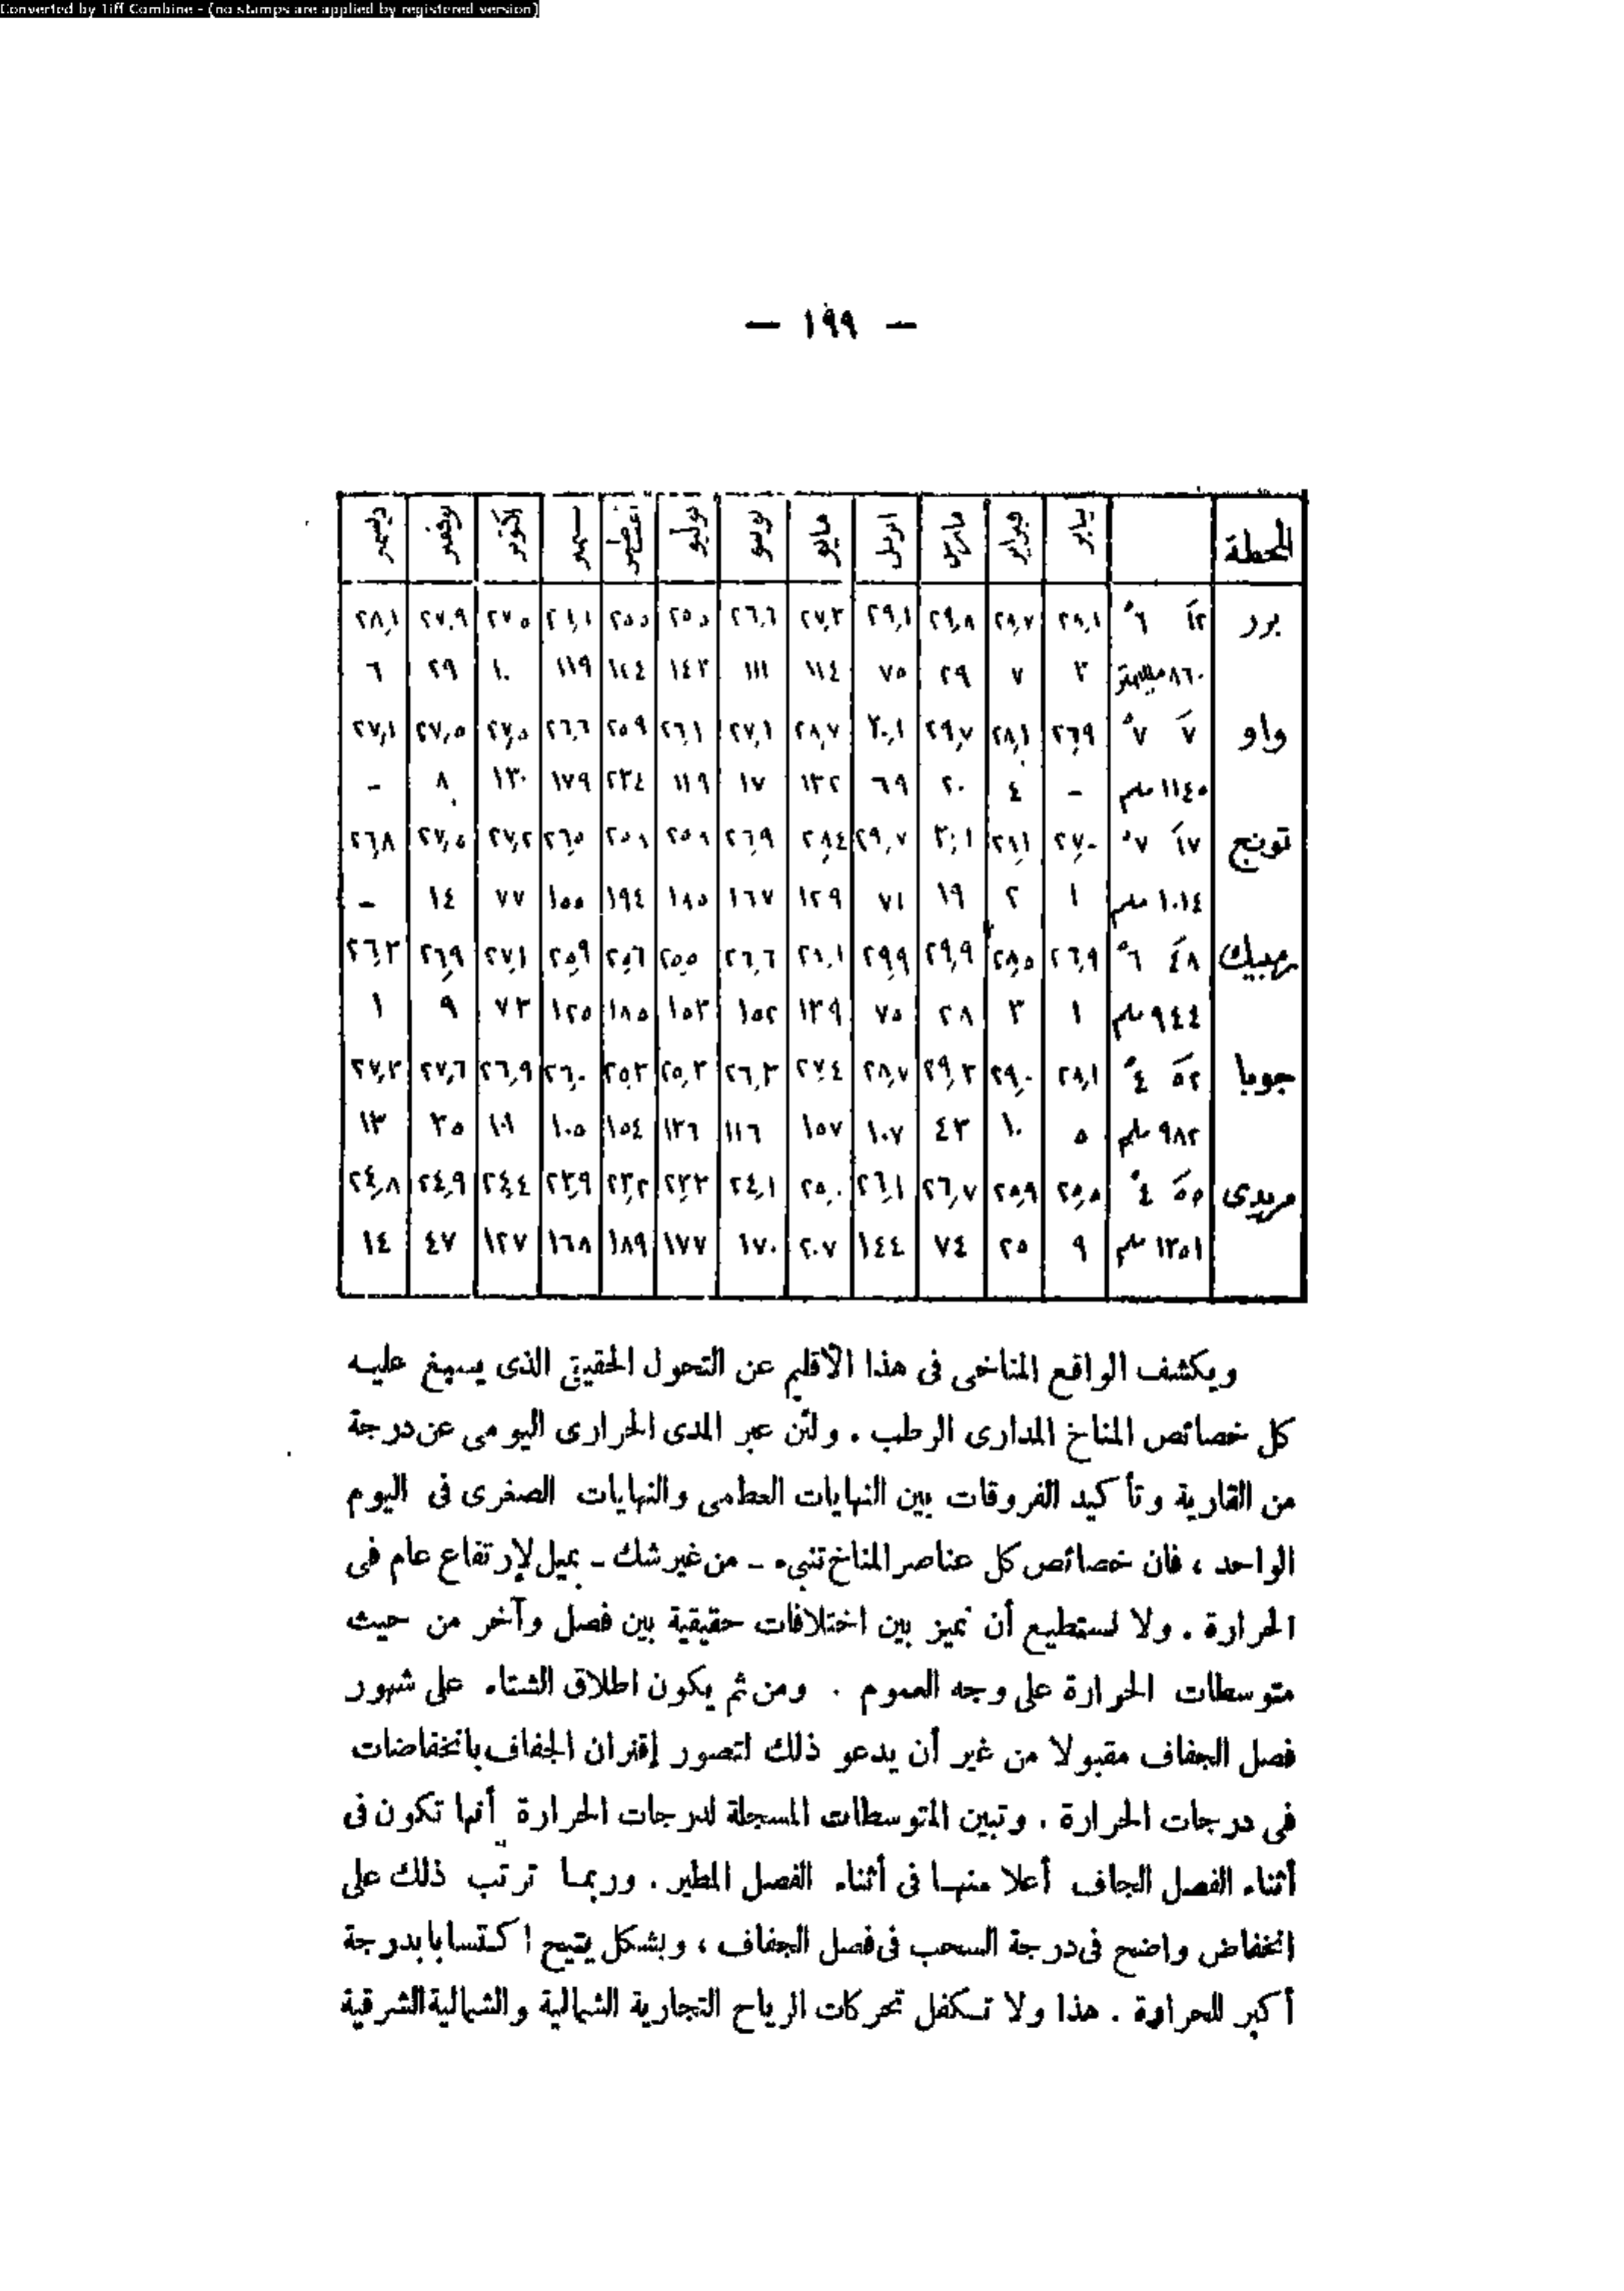 Converted by Tiff Combine - (no stamps are applied by registered version)
— ١٩٩ —
المحطة يناير فبراير مارس ابريل مايو يونيو يوليو اغسطس سبتمبر اكتوبر نوفمبر ديسمبر
بور ١٢َ ٦ْ ٢٨,١ ٢٨,٧ ٢٩,٨ ٢٩,١ ٢٧,٣ ٢٦,٦ ٢٥٥ ٢٥٥ ٢٧٥ ٢٧,٩ ٢٨,١
٨٦٠ ملليمتر ٣ ٧ ٢٩ ٧٥ ١١٤ ١١١ ١٤٣ ١١٩ ٢٩ ٦
واو ٧َ ٧ْ ٢٦,٩ ٢٨,١ ٢٩,٧ ٣٠,١ ٢٨,٧ ٢٧,١ ٢٦,١ ٢٥٩ ٢٦,٦ ٢٧,٥ ٢٧,٥ ٢٧,١
١١٤٠ ملم – ٤ ٢٠ ٦٩ ١٣٢ ١٧ ١١٩ ٢٣٤ ١٧٩ ١٣٠ ٨ –
تونج ١٧َ ٧ْ ٢٧,٠ ٣٠,١ ٢٩,٧ ٢٨,٤ ٢٦,٩ ٢٦,٥ ٢٧,٢ ٢٧,٥ ٢٦,٨
١٠١٤ ملم ١ ٢ ١٩ ٧١ ١٢٩ ١٦٧ ١٨٥ ١٩٤ ١٥٥ ٧٧ ١٤ –
رمبيك ٤٨َ ٦ْ ٢٦,٩ ٢٨,٥ ٢٩,٩ ٢٩,٩ ٢٨,١ ٢٦,٦ ٢٥,٥ ٢٥,٦ ٢٥,٩ ٢٧,١ ٢٦,٩ ٢٦,٣
٩٤٤ ملم ١ ٣ ٢٨ ٧٥ ١٣٩ ١٥٢ ١٥٣ ١٨٥ ١٢٥ ٧٣ ٩ ١
جوبا ٥٢َ ٤ْ ٢٨,١ ٢٩,٠ ٢٩,٣ ٢٨,٧ ٢٧,٤ ٢٦,٣ ٢٥,٣ ٢٥,٣ ٢٦,٠ ٢٦,٩ ٢٧,٦ ٢٧,٣
٩٨٢ ملم ٥ ١٠ ٤٣ ١٠٧ ١٥٧ ١١٦ ١٣٦ ١٥٤ ١٠٥ ١٠٩ ٣٥ ١٣
مريدى ٥٥َ ٤ْ ٢٥,٨ ٢٥,٩ ٢٦,٧ ٢٦,١ ٢٥,٠ ٢٤,١ ٢٣,٣ ٢٣,٢ ٢٣,٩ ٢٤,٤ ٢٤,٩ ٢٤,٨
١٣٥١ ملم ٩ ٢٥ ٧٤ ١٤٤ ٢٠٧ ١٧٠ ١٧٧ ١٨٩ ١٦٨ ١٢٧ ٤٧ ١٤
ويكشف الواقع المناخى فى هذا الأقليم عن التحول الحقيقى الذى يسبغ عليه
كل خصائص المناخ المدارى الرطب . ولئن عبر المدى الحرارى اليومى عن درجة
من القارية وتأكيد الفروقات بين النهايات العظمى والنهايات الصغرى فى اليوم
الواحد ، فان خصائص كل عناصر المناخ تنبىء – من غير شك – بميل لإرتفاع عام فى
الحرارة . ولا نستطيع أن نميز بين اختلافات حقيقية بين فصل وآخر من حيث
متوسطات الحرارة على وجه العموم . ومن ثم يكون اطلاق الشتاء على شهور
فصل الجفاف مقبولا من غير أن يدعو ذلك لتصور إقتران الجفاف بانخفاضات
فى درجات الحرارة . وتبين المتوسطات المسجلة لدرجات الحرارة أنها تكون فى
أثناء الفصل الجاف أعلا منها فى أثناء الفصل المطير . وربما ترتب ذلك على
انخفاض واضح فى درجة السحب فى فصل الجفاف ، وبشكل يتيح اكتسابا بدرجة
أكبر للحرارة . هذا ولا تكفل تحركات الرياح التجارية الشمالية والشمالية الشرقية